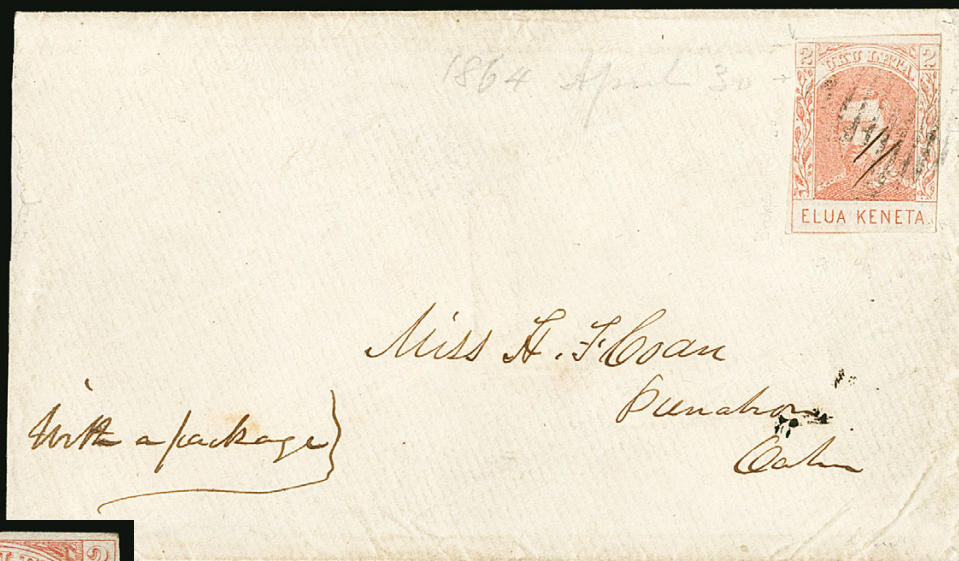 1864 April 30
2 UKU LETA 2
ELUA KENETA
Miss H. F. Coan
Punahou
With a package
Oahu
2